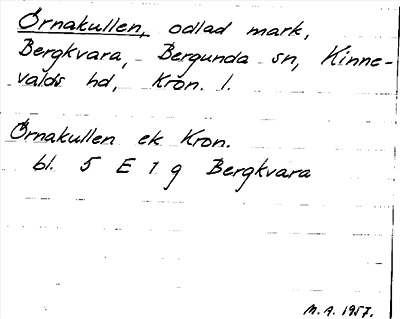 Örnakullen, odlad mark,
Bergkvara, Bergunda sn, Kinne-
valds hd, Kron. l.
Örnakullen ek Kron.
bl. 5 E 1 g Bergkvara
M.A. 1957.